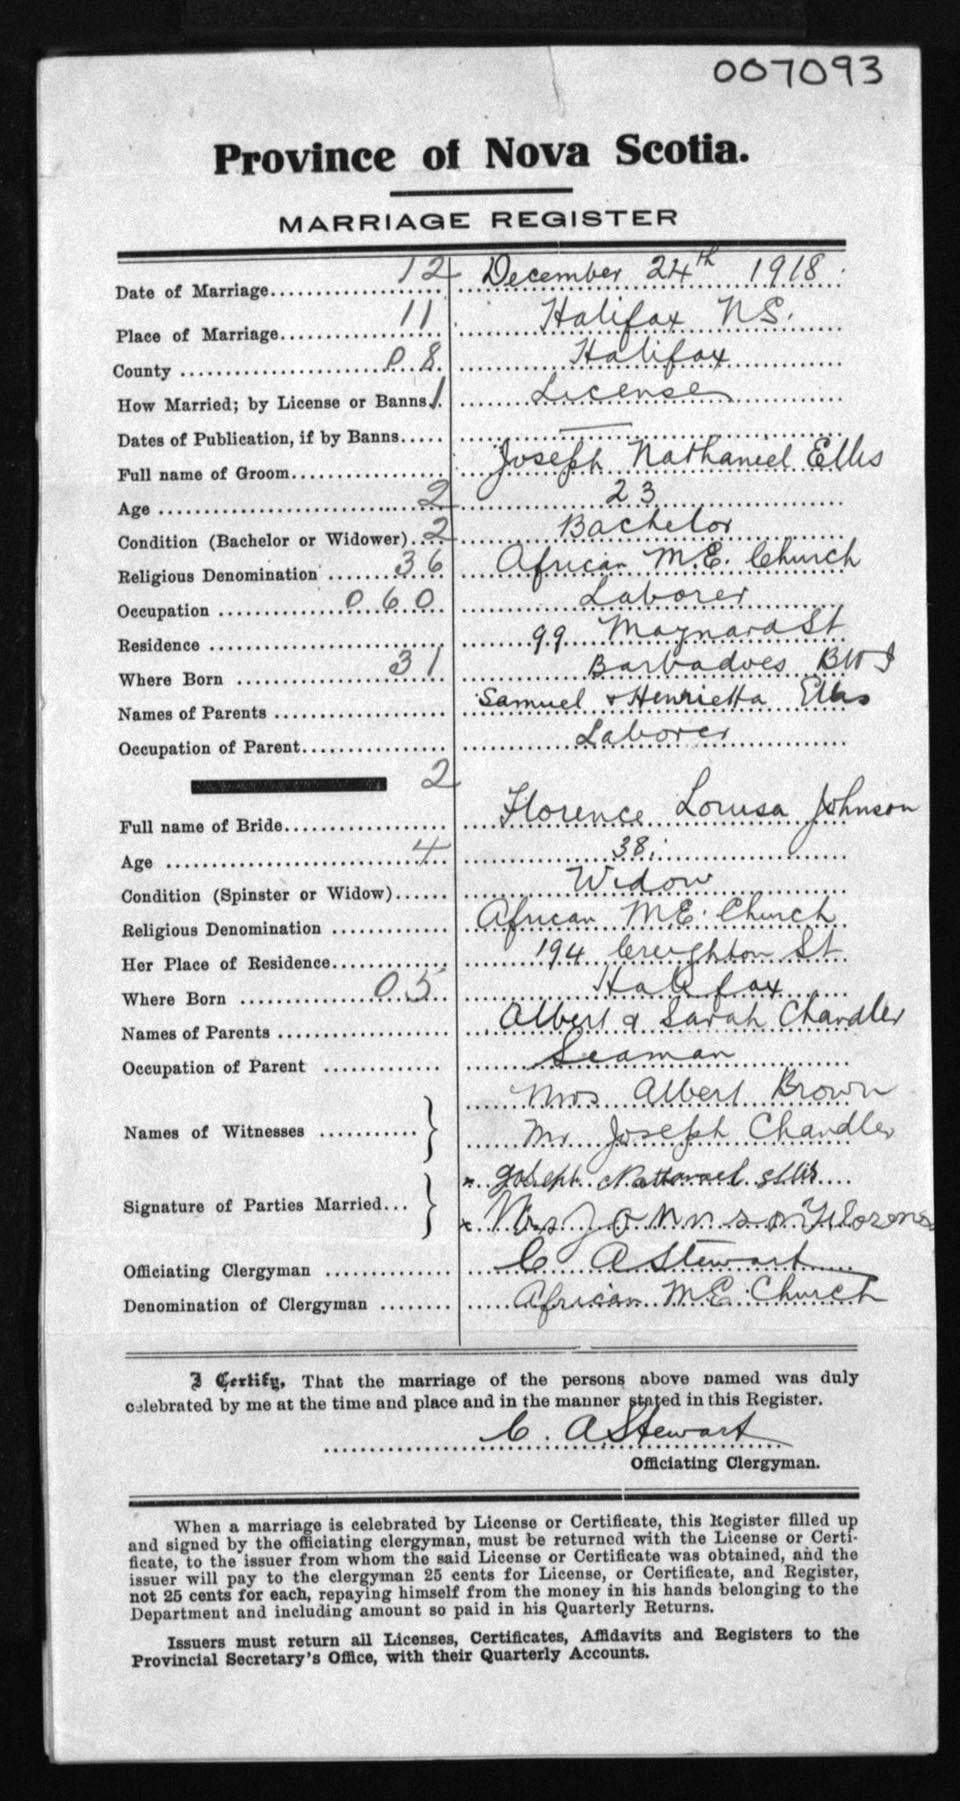 007093
Province of Nova Scotia.
MARRIAGE REGISTER
Date of Marriage 12 December 24th 1918.
Place of Marriage 11 Halifax NS.
County 08 Halifax
How Married; by License or Banns 1 License
Dates of Publication, if by Banns —
Full name of Groom Joseph Nathaniel Ellis
Age 2 23
Condition (Bachelor or Widower) 2 Bachelor
Religious Denomination 36 African M.E. Church
Occupation 060 Laborer
Residence 99 Maynard St
Where Born 31 Barbadoes BWI
Names of Parents Samuel & Henrietta Ellis
Occupation of Parent Laborer
2
Full name of Bride Florence Louisa Johnson
Age 4 38.
Condition (Spinster or Widow) Widow
Religious Denomination African M.E. Church
Her Place of Residence 194 Creighton St
Where Born 05 Halifax
Names of Parents Albert & Sarah Chandler
Occupation of Parent Seaman
Mrs Albert Brown
Names of Witnesses } Mr Joseph Chandler
x Joseph Nathanael Ellis
Signature of Parties Married } x Mrs Johnson
Officiating Clergyman C A Stewart
Denomination of Clergyman African M.E. Church
I Certify, That the marriage of the persons above named was duly
celebrated by me at the time and place and in the manner stated in this Register.
C. A Stewart
Officiating Clergyman.
When a marriage is celebrated by License or Certificate, this Register filled up
and signed by the officiating clergyman, must be returned with the License or Certi-
ficate, to the issuer from whom the said License or Certificate was obtained, and the
issuer will pay to the clergyman 25 cents for License, or Certificate, and Register,
not 25 cents for each, repaying himself from the money in his hands belonging to the
Department and including amount so paid in his Quarterly Returns.
Issuers must return all Licenses, Certificates, Affidavits and Registers to the
Provincial Secretary's Office, with their Quarterly Accounts.